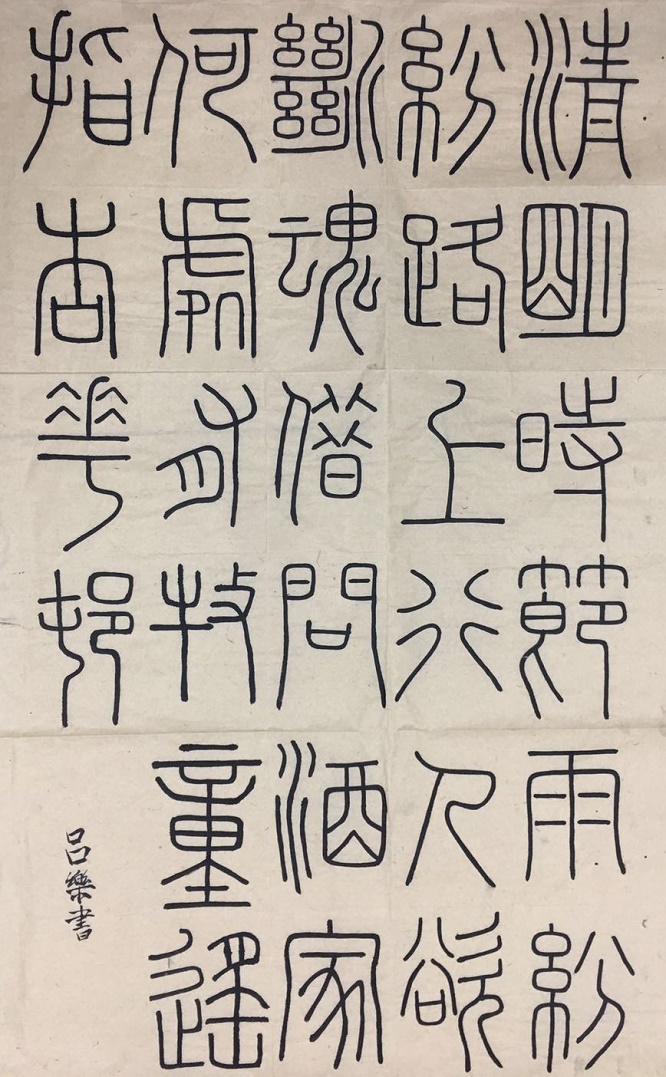 清明時節雨紛
紛路上行人欲
斷魂借問酒家
何處有牧童遥
指杏華邨
呂樂書